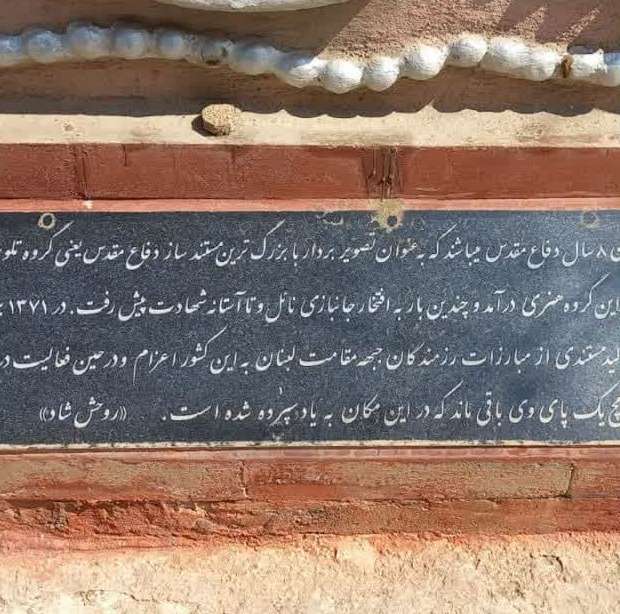 ۸ سال دفاع مقدس میباشند که به عنوان تصویر بردار با بزرگ ترین مستند ساز دفاع مقدس یعنی گروه تلو
این گروه هنری درآمد و چندین بار به افتخار جانبازی نائل و تا آستانه شهادت پیش رفت. در ۱۳۷۱
مستندی از مبارزات رزمندگان جبهه مقامت لبنان به این کشور اعزام و در حین فعالیت در
یک پای وی باقی ماند که در این مکان به یاد سپروه شده است. «روحش شاد»